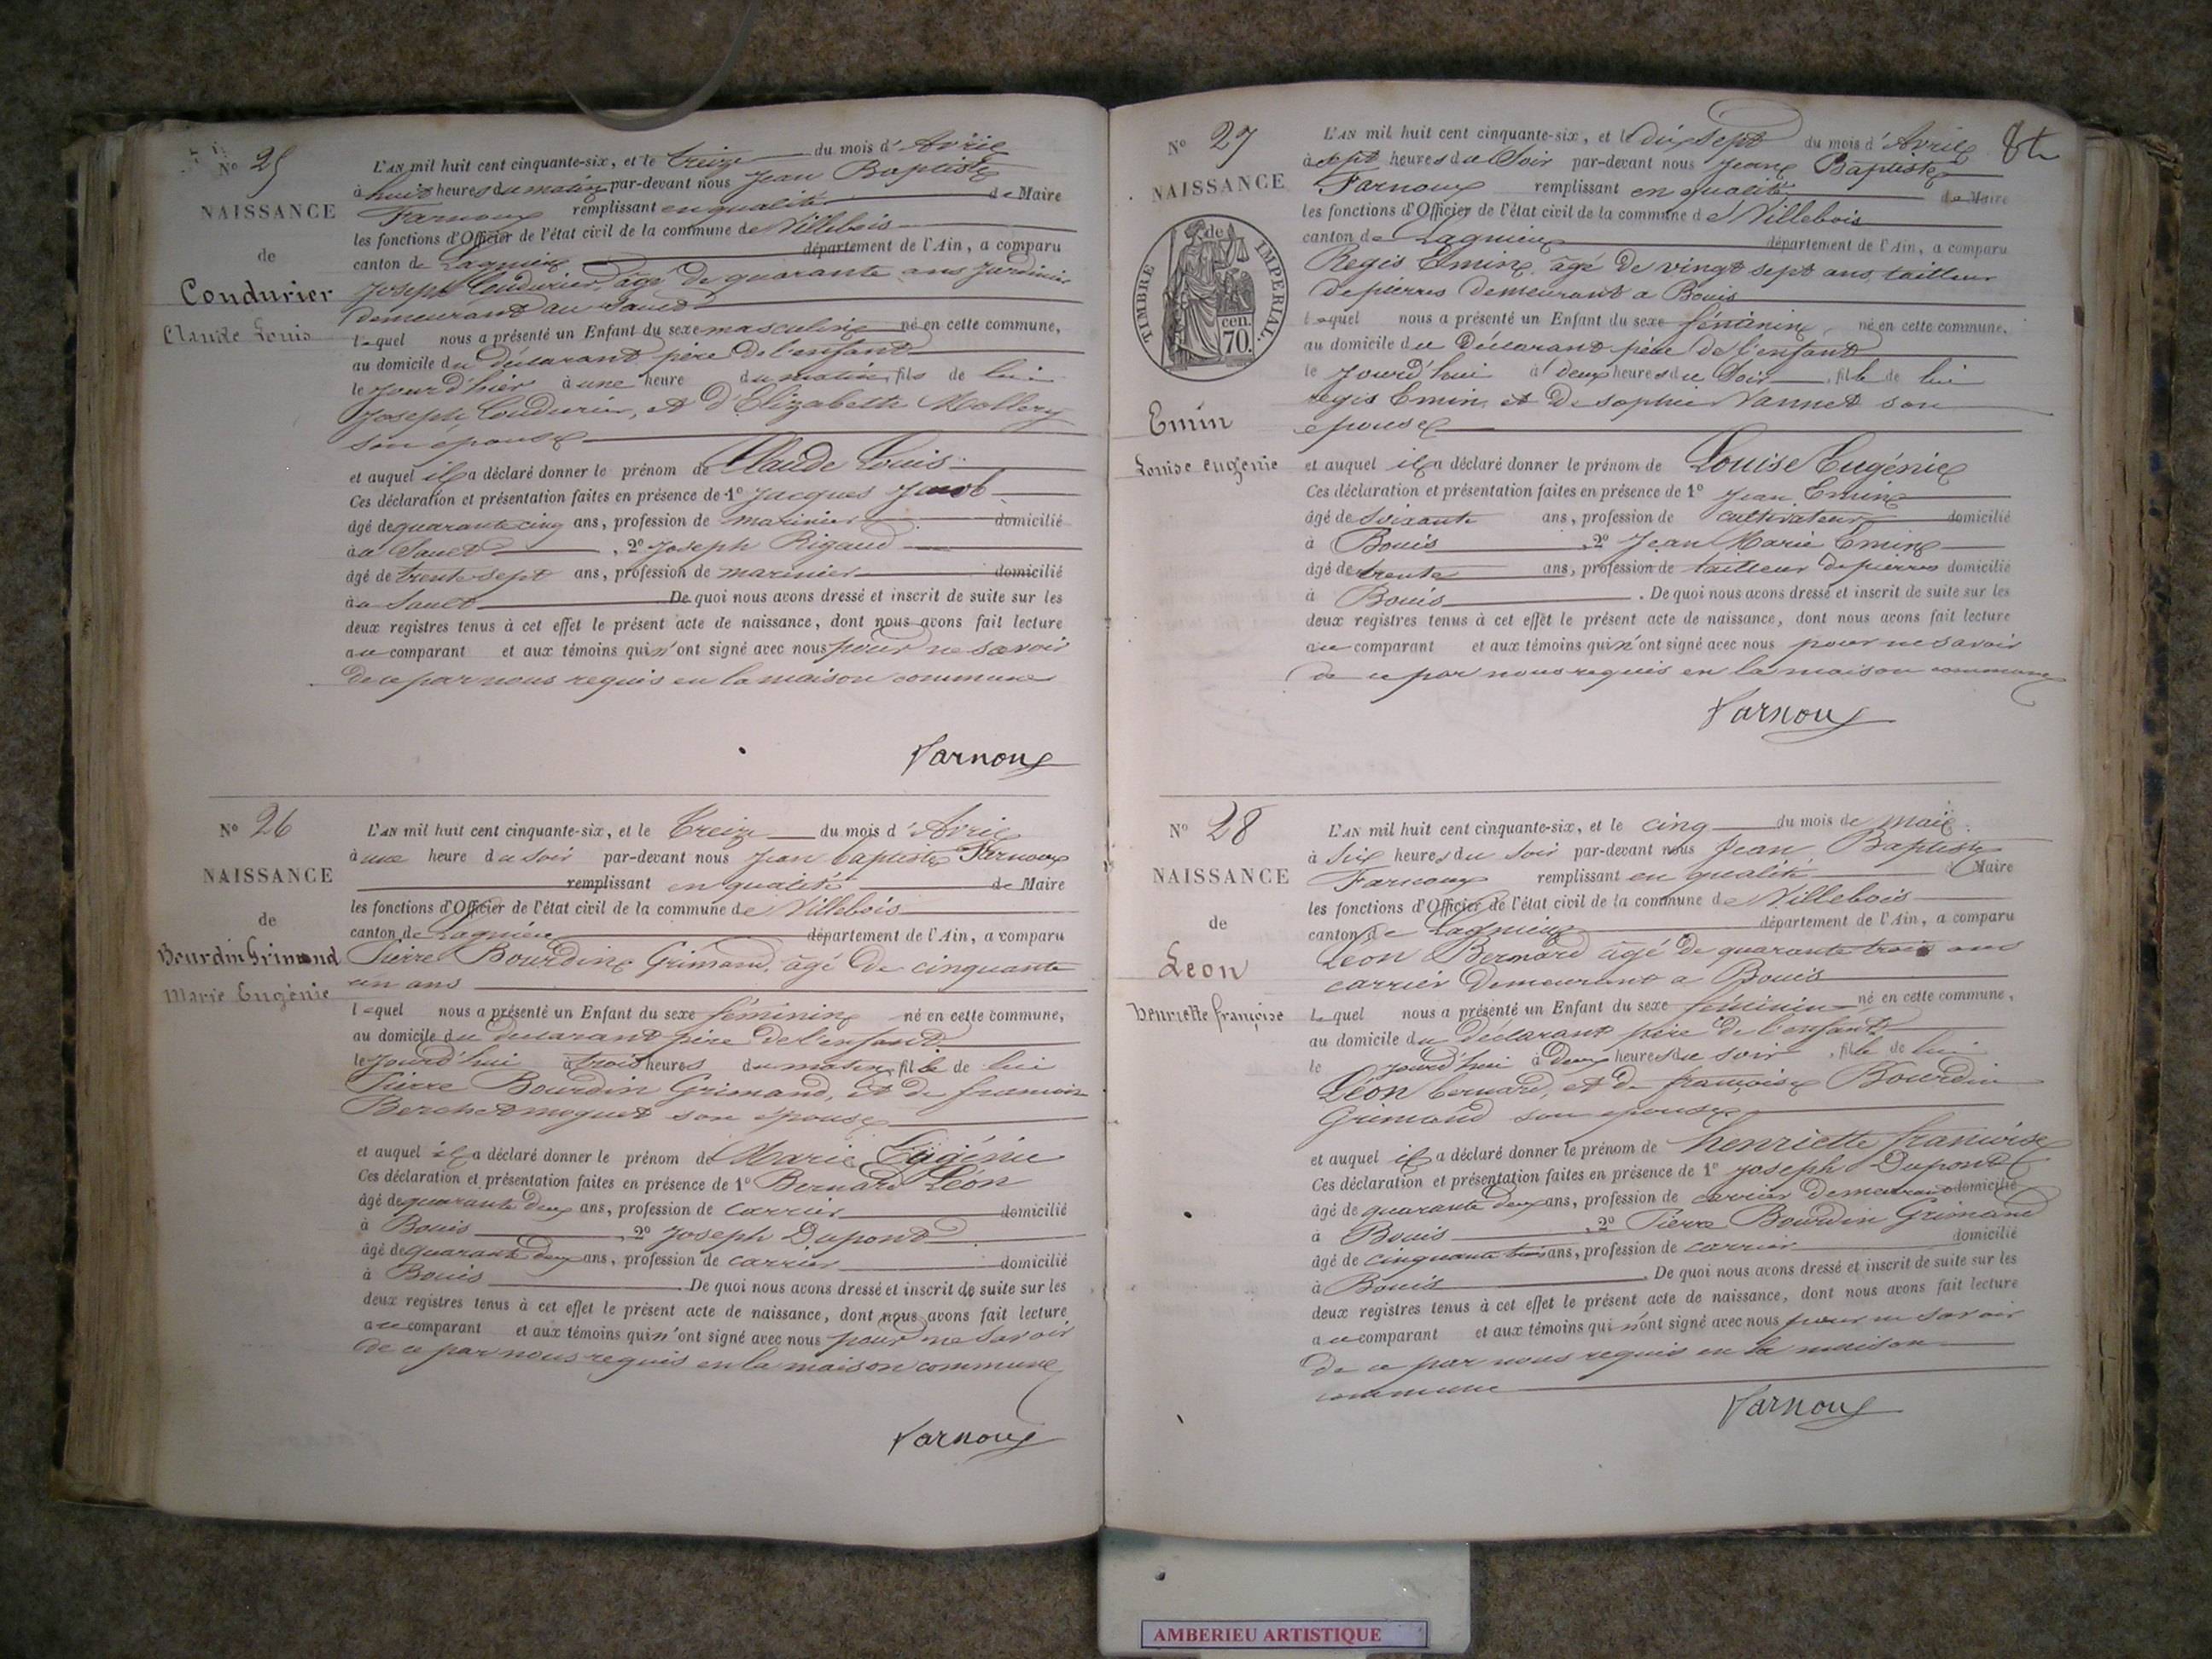 N° 25
NAISSANCE
de
Condurier
Claude Louis
L'AN mil huit cent cinquante-six, et le treize du mois d'Avril
à huit heures du matin par-devant nous Jean Baptiste
Farnoux remplissant en qualité de Maire
les fonctions d'Officier de l'état civil de la commune de Villebois
canton de Lagnieu département de l'Ain, a comparu
Joseph Condurier, âgé de quarante ans
demeurant au Sault
lequel nous a présenté un Enfant du sexe masculin né en cette commune,
au domicile du déclarant père de l'enfant
le jour d'hier à une heure du matin, fils de lui
Joseph Condurier, et d'Elizabeth
son epouse
et auquel il a déclaré donner le prénom de Claude Louis
Ces déclaration et présentation faites en présence de 1° Jacques
âgé de quarante cinq ans, profession de marinier domicilié
au Sault, 2° Joseph Rigaud
âgé de trente sept ans, profession de marinier domicilié
au Sault De quoi nous avons dressé et inscrit de suite sur les
deux registres tenus à cet effet le présent acte de naissance, dont nous avons fait lecture
au comparant et aux témoins qui n'ont signé avec nous pour ne savoir
de ce par nous requis en la maison commune
Farnoux
N° 26
NAISSANCE
de
Bourdin Grimond
Marie Eugénie
L'AN mil huit cent cinquante-six, et le treize du mois d'Avril
à une heure du soir par-devant nous Jean baptiste Farnoux
remplissant en qualité de Maire
les fonctions d'Officier de l'état civil de la commune de Villebois
canton de Lagnieu département de l'Ain, a comparu
Pierre Bourdin Grimand, âgé de cinquante
un ans
lequel nous a présenté un Enfant du sexe féminin né en cette commune,
au domicile du déclarant père de l'enfant
le jourd'hui à trois heures du matin, fille de lui
Pierre Bourdin Grimand, et de
son épouse
et auquel il a déclaré donner le prénom de Marie Eugénie
Ces déclaration et présentation faites en présence de 1° Bernard Léon
âgé de quarante deux ans, profession de carrier domicilié
à Bouis, 2° Joseph Dupont
âgé de quarante deux ans, profession de carrier domicilié
à Bouis De quoi nous avons dressé et inscrit de suite sur les
deux registres tenus à cet effet le présent acte de naissance, dont nous avons fait lecture
au comparant et aux témoins qui n'ont signé avec nous pour ne savoir
de ce par nous requis en la maison commune
Farnoux
N° 27
NAISSANCE
TIMBRE IMPERIAL
de
cen.
70.
Emin
Louise eugénie
L'AN mil huit cent cinquante-six, et le dix sept du mois d'Avril
à sept heures du Soir par-devant nous Jean Baptiste
Farnoux remplissant en qualité de Maire
les fonctions d'Officier de l'état civil de la commune de Villebois
canton de Lagnieu département de l'Ain, a comparu
Regis Emin, âgé de vingt sept ans, tailleur
de pierres demeurant a Bouis
lequel nous a présenté un Enfant du sexe féminin né en cette commune,
au domicile du Déclarant père de l'enfant
le jourd'hui à deux heures du Soir, fille de lui
regis Emin et de sophie Vannet son
epouse
et auquel il a déclaré donner le prénom de Louise Eugénie
Ces déclaration et présentation faites en présence de 1° Jean Emin
âgé de soixante ans, profession de cultivateur domicilié
à Bouis, 2° Jean Marie Emin
âgé de trente ans, profession de tailleur de pierres domicilié
à Bouis. De quoi nous avons dressé et inscrit de suite sur les
deux registres tenus à cet effet le présent acte de naissance, dont nous avons fait lecture
au comparant et aux témoins qui n'ont signé avec nous pour ne savoir
de ce par nous requis en la maison commune
Farnoux
N° 28
NAISSANCE
de
Leon
henriette françoise
L'AN mil huit cent cinquante-six, et le cinq du mois de mai
à six heures du soir par-devant nous Jean Baptiste
Farnoux remplissant en qualité de Maire
les fonctions d'Officier de l'état civil de la commune de Villebois
canton de Lagnieu département de l'Ain, a comparu
Léon Bernard âgé de quarante trois ans
carrier demeurant a Bouis
lequel nous a présenté un Enfant du sexe féminin né en cette commune,
au domicile du déclarant père de l'enfant
le jourd'hui à deux heures du soir, fille de lui
Léon bernard, et de françoise Bourdin
Grimand son epouse
et auquel il a déclaré donner le prénom de henriette francoise
Ces déclaration et présentation faites en présence de 1° Joseph Dupont
âgé de quarante deux ans, profession de carrier demeurant domicilié
à Bouis, 2° Pierre Bourdin Grimand
âgé de cinquante ans, profession de carrier domicilié
à Bouis. De quoi nous avons dressé et inscrit de suite sur les
deux registres tenus à cet effet le présent acte de naissance, dont nous avons fait lecture
au comparant et aux témoins qui n'ont signé avec nous pour ne savoir
de ce par nous requis en la maison
commune
Farnoux
AMBERIEU ARTISTIQUE